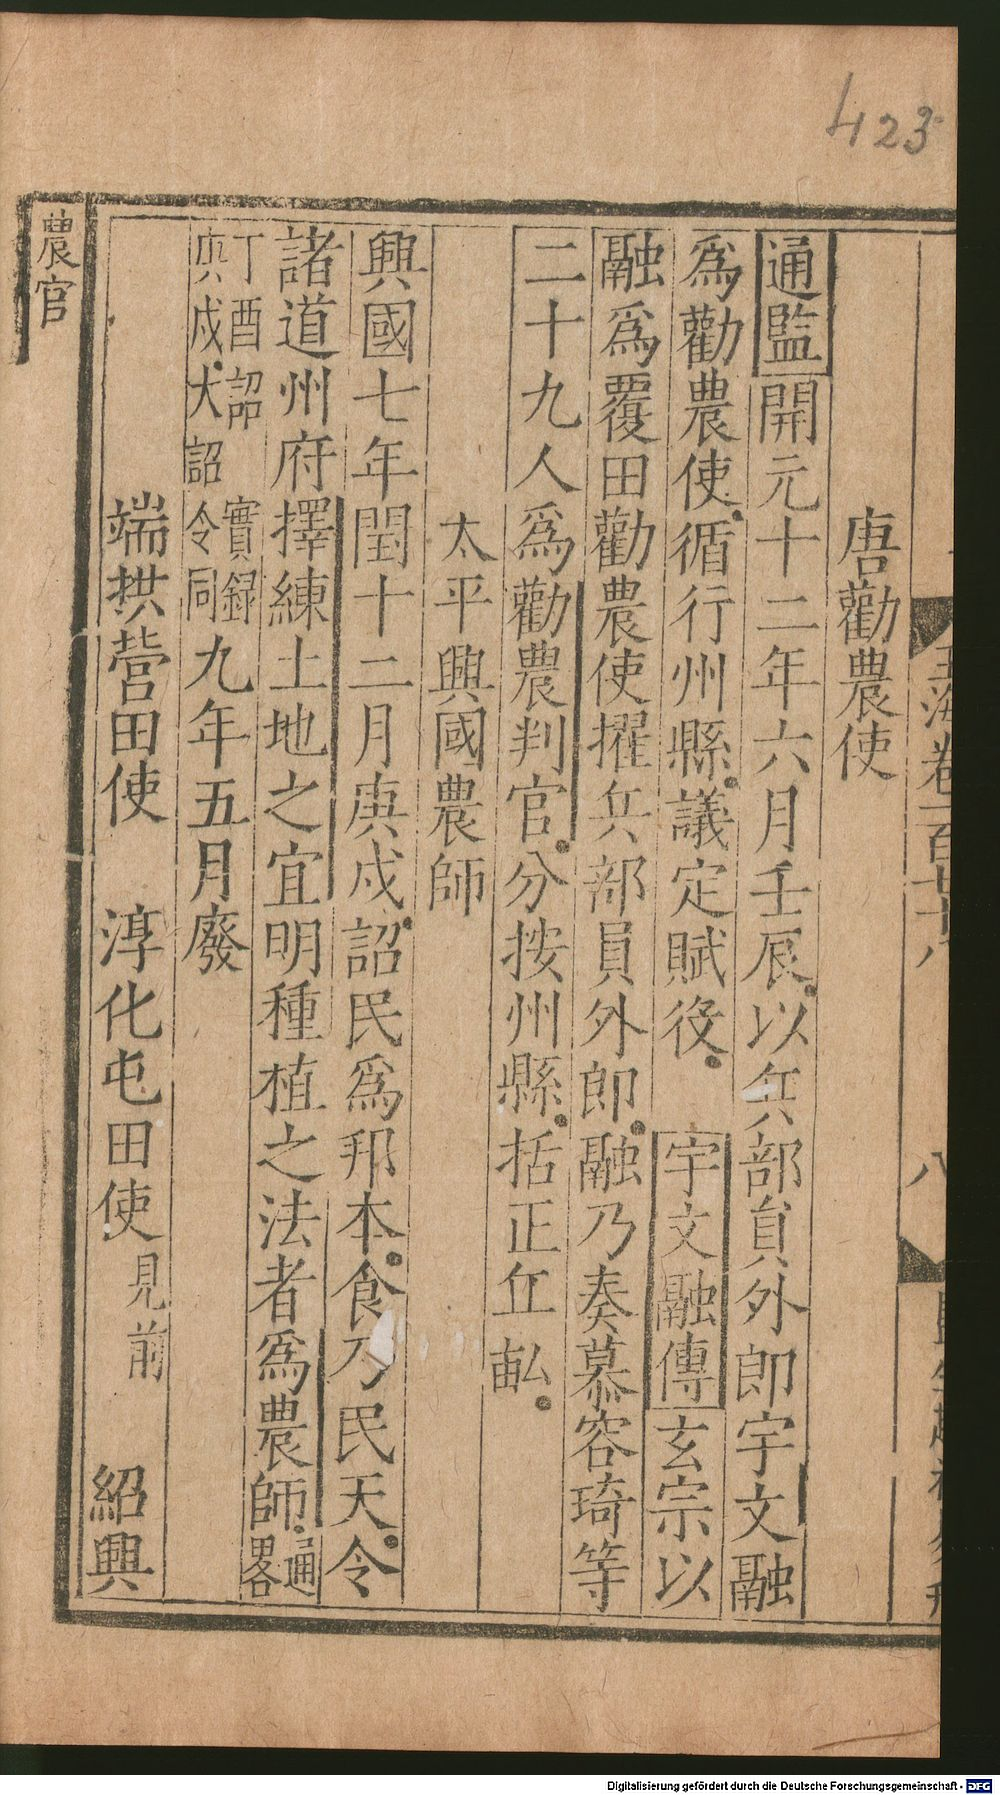 423
玉海卷一百七十八
八
唐勸農使
通監開元十二年六月壬辰以兵部員外郎宇文融
為勸農使循行州縣議定賦役 宇文融傳玄宗以
融為覆田勸農使擢兵部員外郎融乃奏慕容琦等
二十九人為勸農判官分按州縣括正丘畝
太平興國農師
興國七年閏十二月庚戍詔民為邦本食乃民天令
諸道州府擇練土地之宜明種植之法者為農師通畧
丁酉詔實録庚戍大詔令同九年五月廢
端拱營田使 淳化屯田使見前 紹興
農官
Digitalisierung gefördert durch die Deutsche Forschungsgemeinschaft - DFG